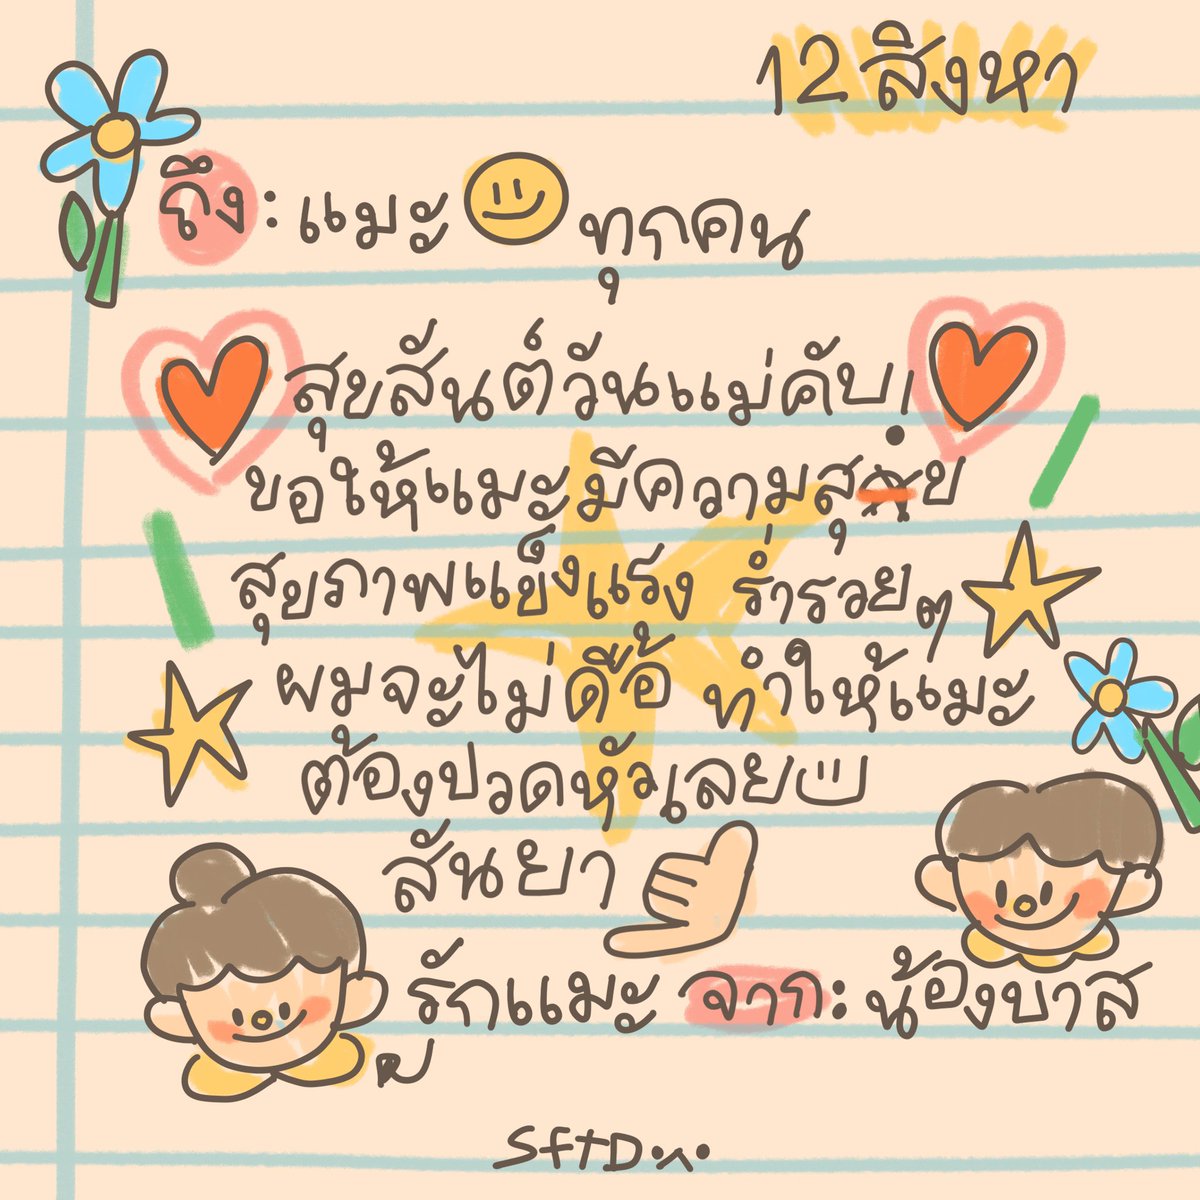 12 สิงหา
ถึง: แมะ ทุกคน
สุขสันต์วันแม่คับ!
ขอให้แมะมีความสุข
สุขภาพแข็งแรง ร่ำรวยๆ
ผมจะไม่ดื้อ ทำให้แมะ
ต้องปวดหัวเลย
สันยา
รักแมะ จาก: น้องบาส
SFTD